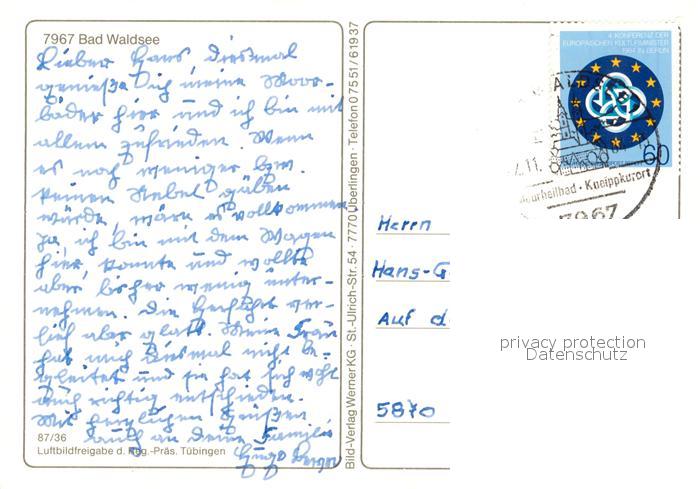 7967 Bad Waldsee
Lieber Hans diesmal
genieße ich meine Moor-
bäder hier und ich bin mit
allem zufrieden. Wenn
es noch weniger bzw.
keinen Nebel gäben
würde, wäre es vollkommen
Ja, ich bin mit dem Wagen
hier, konnte und wollte
aber bisher wenig unter-
nehmen. Die ver-
lief aber glatt. Meine Frau
hat mich diesmal nicht be-
gleitet und sie hat sich wohl
auch richtig entschieden.
Mit herzlichen Grüßen
auch an deine Familie
Hugo
87/36
Luftbildfreigabe d. Reg.-Präs. Tübingen
Bild-Verlag Werner KG · St.-Ulrich-Str. 54 · 7770 Überlingen · Telefon 0 75 51 / 6 19 37
4. KONFERENZ DER
EUROPÄISCHEN KULTUSMINISTER
1984 IN BERLIN
60
Moorheilbad · Kneippkurort
7967
Herrn
Hans-G
Auf d
5870
privacy protection
Datenschutz